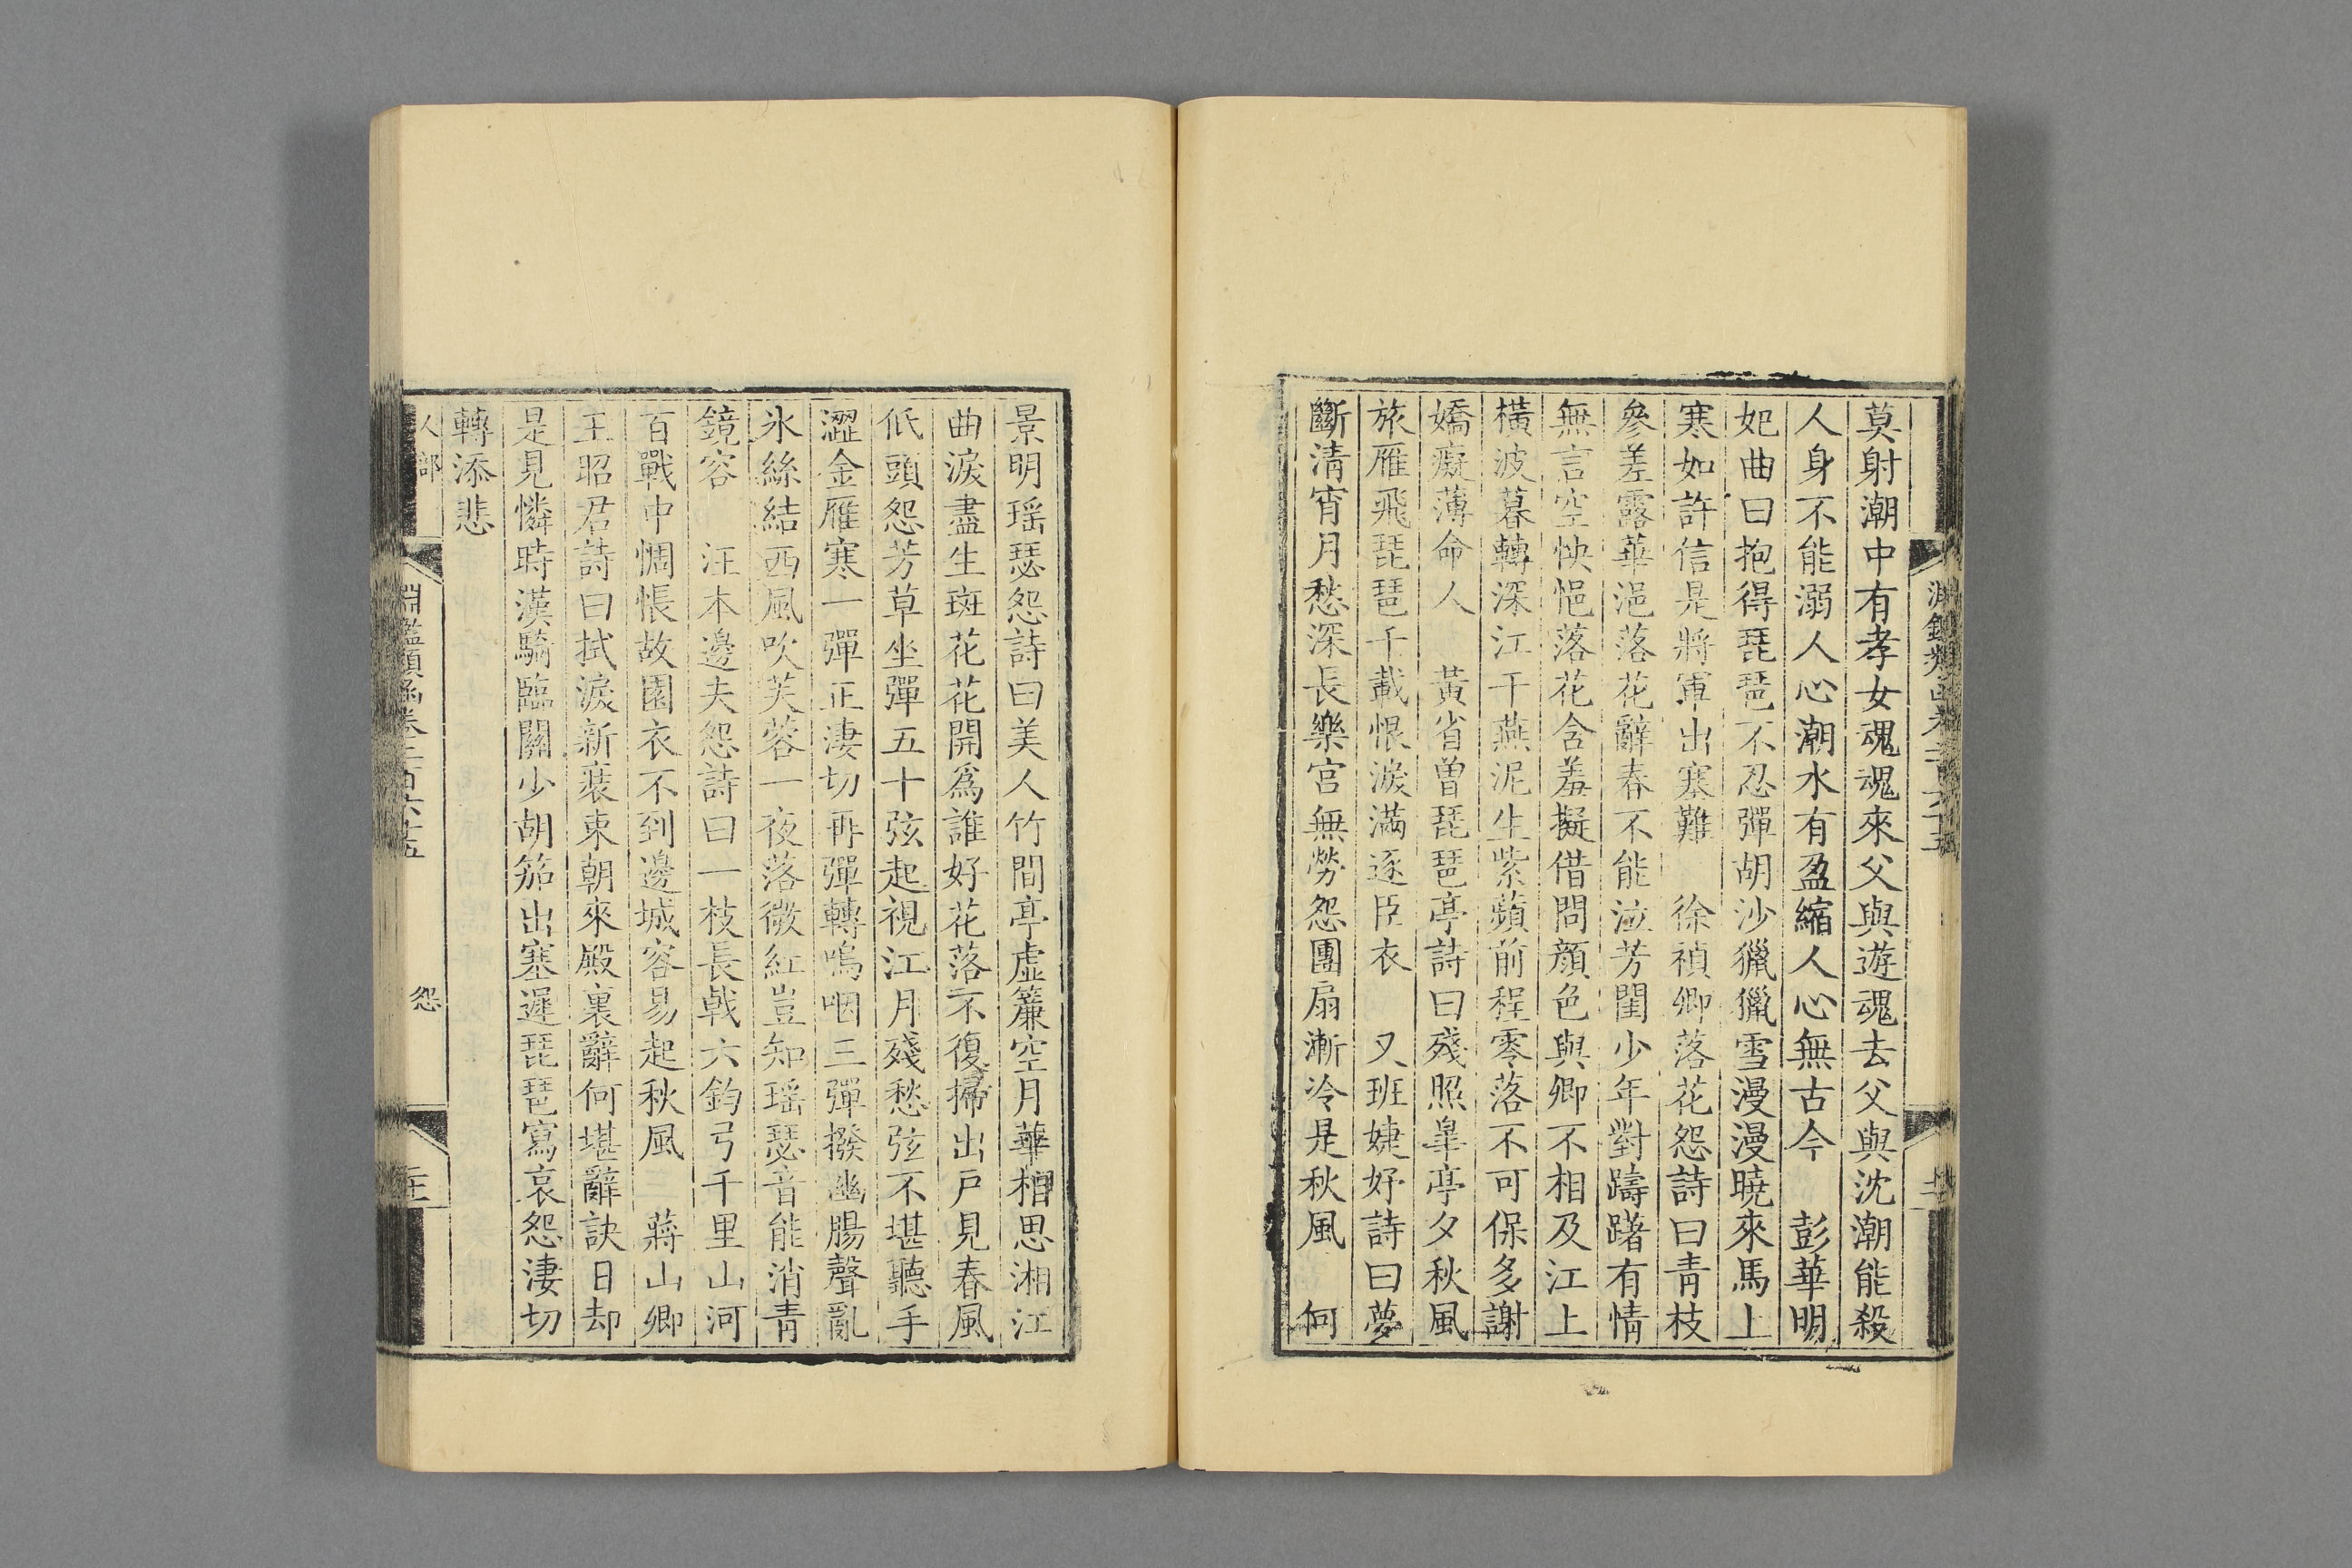 莫射潮中有孝女魂魂來父與遊魂去父與沈潮能殺
人身不能溺人心潮水有盈縮人心無古今　彭華明
妃曲曰抱得琵琶不忍彈胡沙獵獵雪漫漫曉來馬上
寒如許信是將軍出塞難　徐禎卿落花怨詩曰青枝
參差露華浥落花辭春不能泣芳閨少年對躊躇有情
無言空怏悒落花含羞擬借問顔色與卿不相及江上
橫波暮轉深江干燕泥生紫蘋前程零落不可保多謝
嬌癡薄命人　黃省曾琵琶亭詩曰殘照臯亭夕秋風
旅雁飛琵琶千載恨淚滿逐臣衣　又班婕妤詩曰夢
斷清宵月愁深長樂宫無勞怨團扇漸冷是秋風　何
景明瑶瑟怨詩曰美人竹間亭虛簾空月華相思湘江
曲淚盡生斑花花開爲誰好花落不復掃出戸見春風
低頭怨芳草坐彈五十弦起視江月殘愁弦不堪聽手
澀金雁寒一彈正淒切再彈轉嗚咽三彈撥幽腸聲亂
氷絲結西風吹芙蓉一夜落微紅豈知瑶瑟音能消青
鏡容　汪本邊夫怨詩曰一枝長戟六鈞弓千里山河
百戰中惆悵故園衣不到邊城容易起秋風　蔣山卿
王昭君詩曰拭淚新裝束朝來殿裏辭何堪辭訣日却
是見憐時漢騎臨關少胡笳出塞遲琵琶寫哀怨淒切
轉添悲
人部
淵鑑類函卷三百六十五
怨